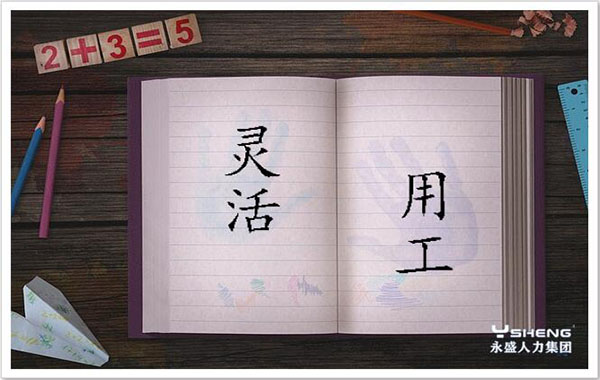 2+3=5
灵活
用工
YSHENG
永盛人力集团